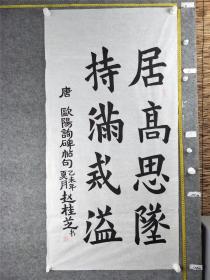 居高思墜
持滿戒溢
唐 歐陽詢碑帖句
乙未年
夏月
赵桂芝书